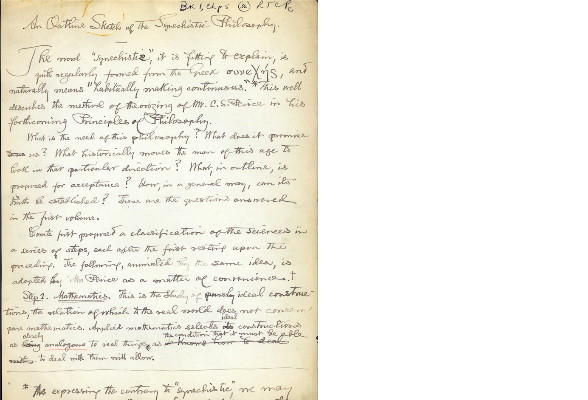 An Outline Sketch of the Synechistic Philosophy.
The word "synechistic," it is fitting to explain, is
quite regularly formed from the Greek συνεχής, and
naturally means "habitually making continuous." * This well
describes the method of theorizing of Mr. C. S. Peirce in his
forthcoming Principles of Philosophy.
What is the need of this philosophy? What does it promise
us? What historically moves the man of this age to
look in that particular direction? What, in outline, is
proposed for acceptance? How, in a general way, can its
truth be established? These are the questions answered
in the first volume.
Comte first proposed a classification of the sciences in
a series of steps, each after the first resting upon the
preceding. The following, animated by the same idea, is
adopted by Mr. Peirce as a matter of convenience.†
Step 1. Mathematics. This is the study of purely ideal construc-
tions, the relation of which to the real world does not concern
pure mathematics. Applied mathematics selects its constructions
ideal
as analogous to real things, as
to deal with them will allow.
* As expressing the contrary to "synechistic," we may